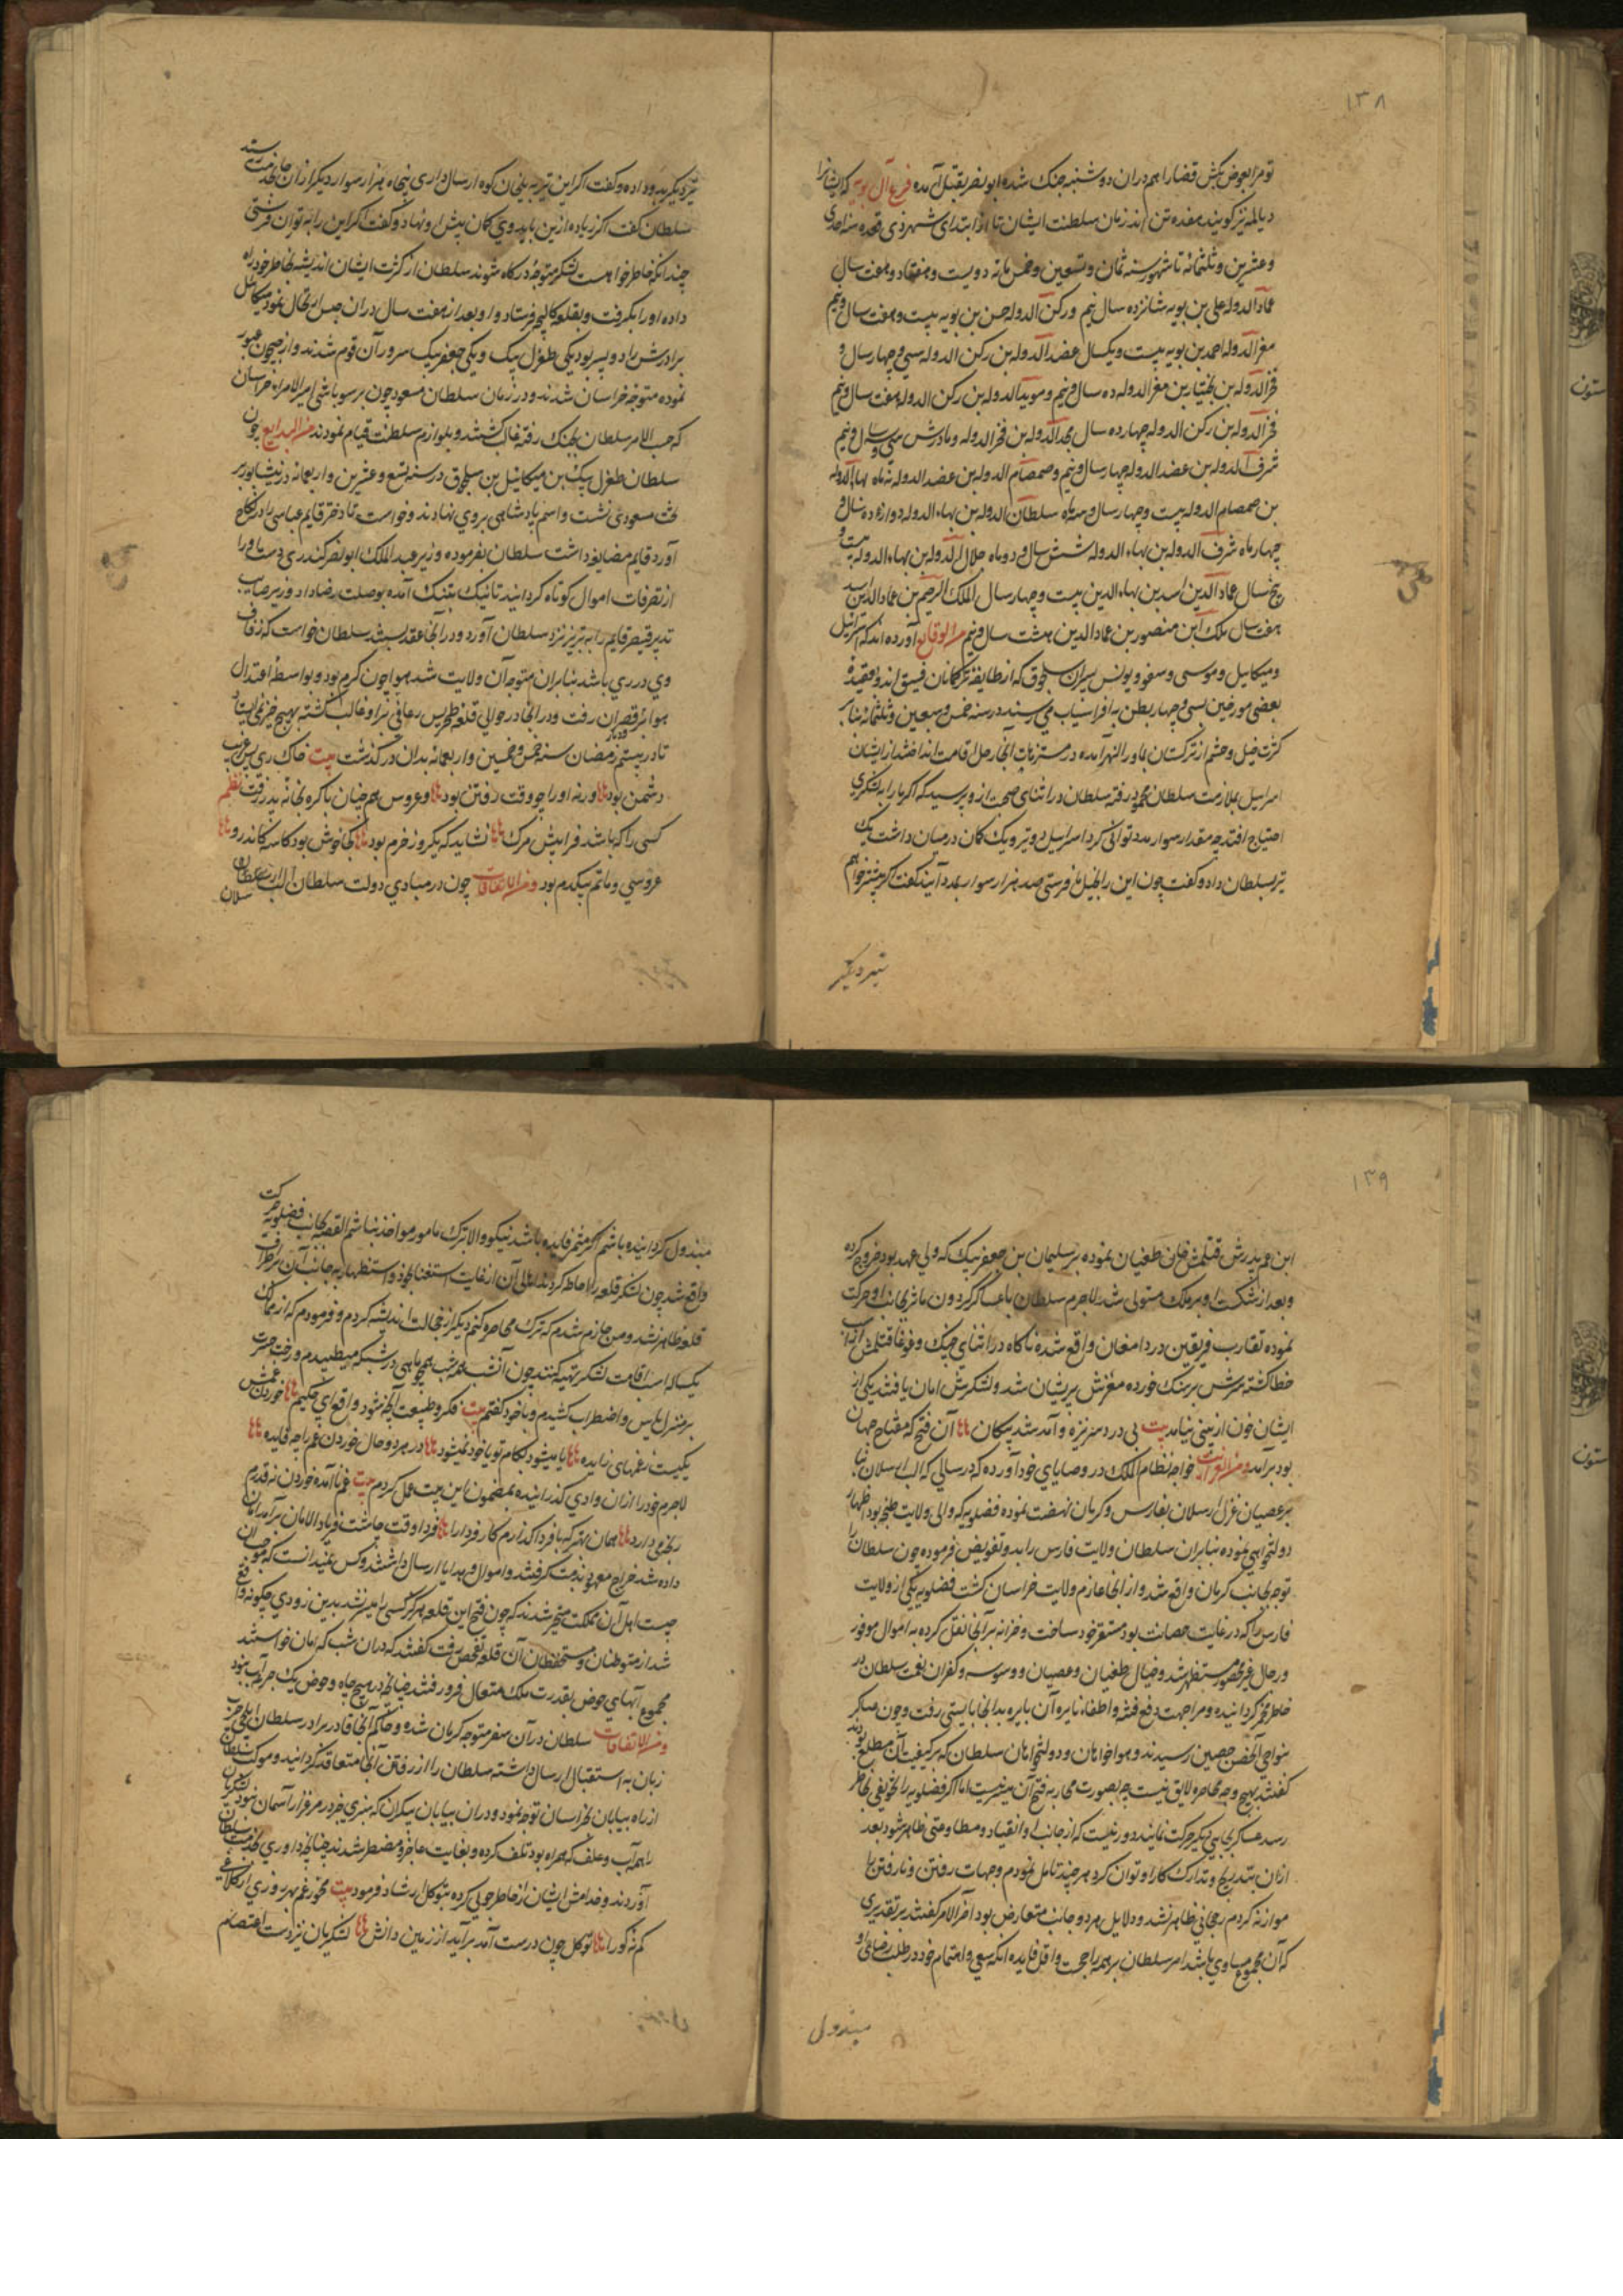 ۱۳۸
تو مرا بعوض بکش قضا را هم دران دو شنبه جنک شده ابو نصر بقتل آمده فرع آل بویه که ایشانرا
دیالمه نیز کویند هفده تن اند زمان سلطنت ایشان تا از ابتدای شهر ذی قعده سنه احدی
و عشرین و ثلثمائه تا شهور سنه ثمان و تسعین و خمس مائه دویست و هفتاد و هفت سال
عماد الدوله علی بن بویه شانزده سال نیم و رکن الدوله حسن بن بویه بیست و هفت سال و نیم
معز الدوله احمد بن بویه بیست و یکسال عضد الدوله بن رکن الدوله سی و چهار سال و
فخر الدوله بن بختیار بن معز الدوله ده سال و نیم و موید الدوله بن رکن الدوله هفت سال و نیم
فخر الدوله بن رکن الدوله چهارده سال مجد الدوله بن فخر الدوله و مادرش سی و سه سال و نیم
شرف الدوله بن عضد الدوله چهار سال و نیم و صمصام الدوله بن عضد الدوله نه ماه بهاء الدوله
بن صمصام الدوله بیست و چهار سال و سه ماه سلطان الدوله بن بهاء الدوله دوازده سال و
چهار ماه شرف الدوله بن بهاء الدوله شش سال و دو ماه جلال الدوله بن بهاء الدوله بیست و
پنج سال عماد الدین اسد بن بهاء الدین بیست و چهار سال الملک الرحیم بن عماد الدین اسد
هفت سال ملک ابن منصور بن عماد الدین هشت سال و نیم من الوقایع آورده اند که اسرائیل
و میکائیل و موسی و یونس پسران سلجوق که از طایفه ترکمانان قنیق اند و بعقیده
بعضی مورخین بسی و چهار بطن به افراسیاب می رسند در سنه خمس و سبعین و ثلثمائه بنا بر
کثرت خیل و حشم از ترکستان بماورالنهر آمده در مستنزهات انجا رحل اقامت انداختند از ایشان
اسرائیل بملازمت سلطان محمود رفته سلطان در اثنای صحبت از و پرسید که اکر ما را به لشکری
احتیاج افتد چه مقدار سوار مدد توانی کرد اسرائیل دو تیر و یک کمان در میان داشت یک
تیر بسلطان داد و کفت چون این را بخیل ما فرستی صد هزار سوار بمدد آیند کفت اکر بیشتر خواهم
تیر دیکر
تیر دیکر بدو داده و کفت اکر این تیر به بلخان کوه ارسال داری پنجاه هزار سوار دیکر از ان جا بخدمت رسند
سلطان کفت اکر زیاده ازین باید وی کمان پیش او نهاد و کفت اکر این را به توران فرستی
چندانکه خاطر خواهست لشکر متوجه درکاه شوند سلطان از کثرت ایشان اندیشه بخاطر خود راه
داده او را بکرفت و بقلعه کالنجر فرستاد و او بعد از هفت سال دران حبس ارتحال نمود میکائیل
برادرش را دو پسر بود یکی طغرل بیک و یکی جعفر بیک سرور آن قوم شدند و از جیحون عبور
نموده متوجه خراسان شدند و در زمان سلطان مسعود چون بر سوباشی امیر الامراء خراسان
که حسب الامر سلطان بجنک رفته غالب کشتند و بلوازم سلطنت قیام نمودند من البدایع چون
سلطان طغرل بیک بن میکائیل بن سلجوق در سنه تسع و عشرین و اربعمائه در نیشابور بر
تخت مسعودی نشست و اسم پادشاهی بر وی نهادند و خواست تا دختر قایم عباسی را در نکاح
آورد قایم مضایقه داشت سلطان بفرموده وزیر عبد الملک ابو نصر کندری دست او را
از تصرفات اموال کوتاه کردانید تا نیک بتنک آمده بوصلت رضا داد و وزیر صایب
تدبیر قیصر قایم را به تبریز نزد سلطان آورد و در آنجا عقد بستند سلطان خواست که زفاف
وی در ری باشد بنابران متوجه آن ولایت شد هوا چون کرم بود و بواسطه اعتدال
هوا بر قصران رفت و در انجا در حوالی قلعه طجریس رعافی برو غالب کشته بهیچ چیز نمی ایستاد
تا در بیستم رمضان سنه خمس و خمسین و اربعمائه بدان درکذشت بیت خاک ری بس غریب
دشمن بود ورنه او را چو وقت رفتن بود وعروس همچنان باکره بخانه پدر رفت نظم
کسی را که باشد فرا پیش مرک نشاید که یکروز خرم بود کجا خوش بود کاسه کاندرو
عروسی و ماتم بیکدم بود و من الاتفاقات چون در مبادی دولت سلطان الب ارسلان
۱۳۹
ابن عم پدرش قتلمش خان طغیان نموده بر سلیمان بن جعفر بیک که ولی عهد بود خروج کرده
و بعد از شکست او بر ملک مستولی شد لاجرم سلطان با عساکر کردون مآثر بجانب او حرکت
نموده تقارب فریقین در دامغان واقع شده ناکاه در اثنای جنک و غوغا قتلمش از اسب
خطا کشته سرش بر سنک خورده مغزش پریشان شد و لشکرش امان یافتند یکی از
ایشان خون از بینی نیامد بیت بی درد سر نیزه و آمد شد پیکان آن فتح که مفتاح جهان
بود برآمد و من الغرایب خواجه نظام الملک در وصایای خود آورده که در سالی که الب ارسلان بنا
بر عصیان غزل ارسلان بفارس و کرمان نهضت نموده فضلویه که والی ولایت بود اظهار
دولتخواهی نموده بنابران سلطان ولایت فارس را بدو تفویض فرموده چون سلطان را
توجه بجانب کرمان واقع شد و از انجا عازم ولایت خراسان کشت فضلویه یکی از ولایت
فارس را که در غایت حصانت بود مستقر خود ساخت و خزانه بر آنجا نقل کرده به اموال موفور
و رجال غیر محصور مستظهر شد و خیال طغیان و عصیان و وسوسه و کفران نعمت سلطان در
خاطر مخمر کردانیده و مرا جهت دفع فتنه و اطفاء نایره آن بایره بدانجا بایستی رفت و چون عساکر
بنواحی آنحصن حصین رسیدند و هواخواهان و دولتخواهان سلطان که بر کیفیت آن مطلع بودند
کفتند بهیچ وجه محاصره لایق نیست چه بصورت محاربه فتح آن میسر نیست اما اکر فضلویه را تخویفی بخاطر
رسد عساکر بجایی دیکر حرکت نمایند دور نیست که از جانب او انقیاد و مطاوعتی ظاهر شود بعد
ازان بتدریج و تدارک کار او توان کرد هر چند تامل نمودم وجهات رفتن و نارفتن را
موازنه کردم رجحانی ظاهر نشد و دلایل هر دو جانب متعارض بود آخر الامر کفتند بر تقدیری
که آن مجموع مساوی باشد امر سلطان بر همه راجحت و اقل فایده آنکه سعی و اهتمام خود در طلب رضای او
مبذول
مبذول کردانیده باشم اکر مثمر فایده باشد نیکو والا بترک مامور مواخذ نباشم القصه بجانب فضلویه حرکت
واقع شد چون لشکر قلعه را احاطه کردند اهالی آن از غایت استغنا بخود و استظهار به جانب آن بر اطراف
قلعه ظاهر نشد و من جازم شدم که ترک محاصره کنم دیکر از خجالت اندیشه کردم و فرمودم که از ممالک
یکساله اسباب اقامت لشکر تهیه کنند چون آنشب همه شب همچو ماهی در شبکه میطپیدم و رخت حسرت
بر منزل یاس و اضطراب کشیدم و با خود کفتم بیت فکر و طبیعت آنچه شود واقع ای حکیم خوردن غمش
یکیست غمهای زایده یا میشود بکام تو یا خود نمیشود در هر دو حال خوردن غم را چه فایده
لاجرم خود را ازان وادی کذرانیده بمضمون این بیت عمل کردم بیت غم ناآمده خوردن نه قدم
رنجه می دارد همان بهتر که با فردا کذارم کار فردا را فردا وقت چاشت فریاد الامان برآمد امان
داده شد خراج معهود بذمت کرفتند و اموال و هدایا ارسال داشتند و کس عنید انست که موجب آن
چیست اهل آن مملکت متحیر شدند که چون فتح این قلعه هرکز کسی را میسر نشد بدین زودی چکونه واقع
شد از متوطنان و مستحفظان آن قلعه تفحص رفت کفتند که دران شب که امان خواستند
مجموع آبهای حوض بقدرت ملک متعال فرو رفتند چنانچه در هیچ چاه و حوض یک جرعه آب نبود
و من الاتفاقات سلطان در آن سفر متوجه کرمان شده و حاکم آنجا قادر برادر سلطان ایلچی چرب
زبان به استقبال ارسال داشته سلطان را از رفتن آنجا متقاعد کردانید و موکب سلطان
از راه بیابان بخراسان توجه نمود و دران بیابان بیکران که سبزی بخر در مرغزار آسمان نبود لشکریان
را همه آب و علف که همراه بود تلف کرده و بغایت عاجز و مضطر شدند چنانچه داوری بخدمت سلطان
آوردند و خدامش ایشان از خاطر جویی کرده بتوکل ارشاد فرمود بیت مخور غم بهر روزی از کلاغی
کم نه کورا توکل چون درست آمد برآید از زمین دانش لشکریان نیز دست اعتصام